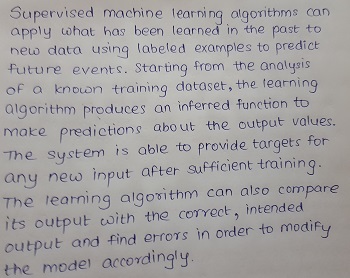 Supervised machine learning algorithms can
apply what has been learned in the past to
new data using labeled examples to predict
future events. Starting from the analysis
of a known training dataset, the learning
algorithm produces an inferred function to
make predictions about the output values.
The system is able to provide targets for
any new input after sufficient training.
The learning algorithm can also compare
its output with the correct, intended
output and find errors in order to modify
the model accordingly.